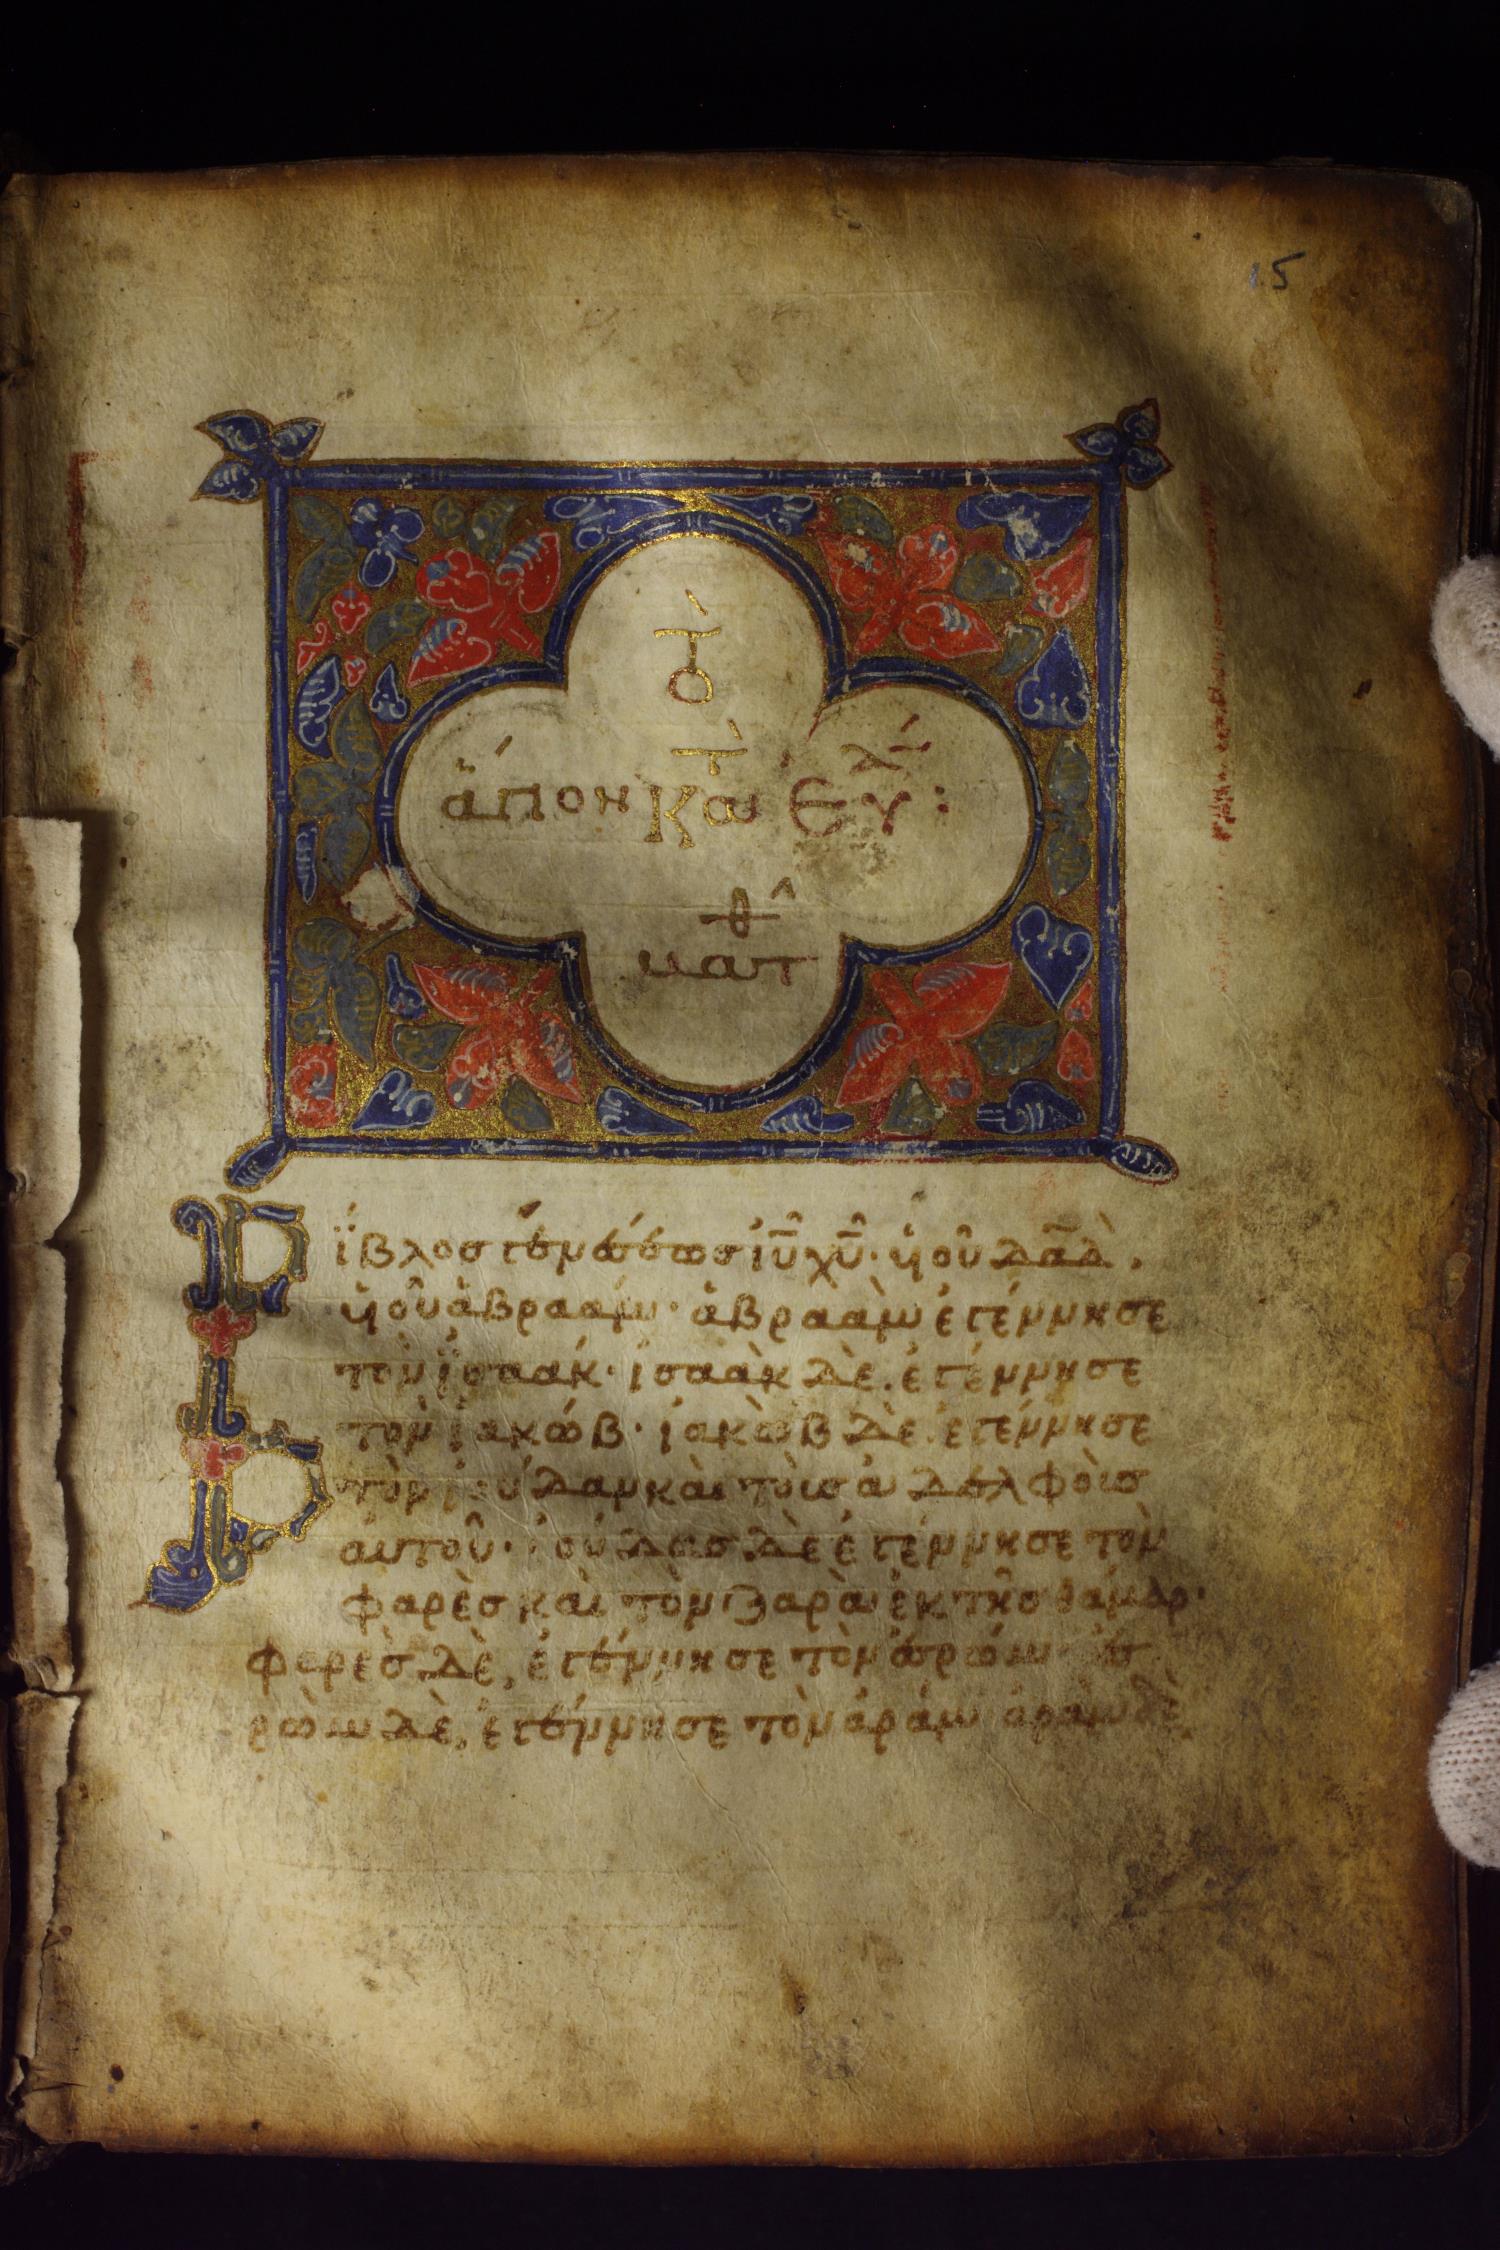 15
τὸ
ἅγιον κατ ευ :
ματθ
Βίβλος γενέσεως ἰυ χυ· ὑοῦ δαδ,
ὑοῦ ἀβραάμ· ἀβραὰμ ἐγέννησε
τὸν ἰσαάκ· ἰσαὰκ δὲ ἐγέννησε
τὸν ἰακώβ· ἰακὼβ δὲ ἐγέννησε
τὸν ἰούδαν καὶ τοὺς ἀδελφοὺς
αὐτοῦ· ἰούδας δὲ ἐγέννησε τὸν
φαρὲς καὶ τὸν ζαρὰ ἐκ τῆς θάμαρ·
φαρὲς δὲ, ἐγέννησε τὸν ἐσρώμ ἐσ
ρὼμ δὲ, ἐγέννησε τὸν ἀράμ ἀρὰμ δὲ